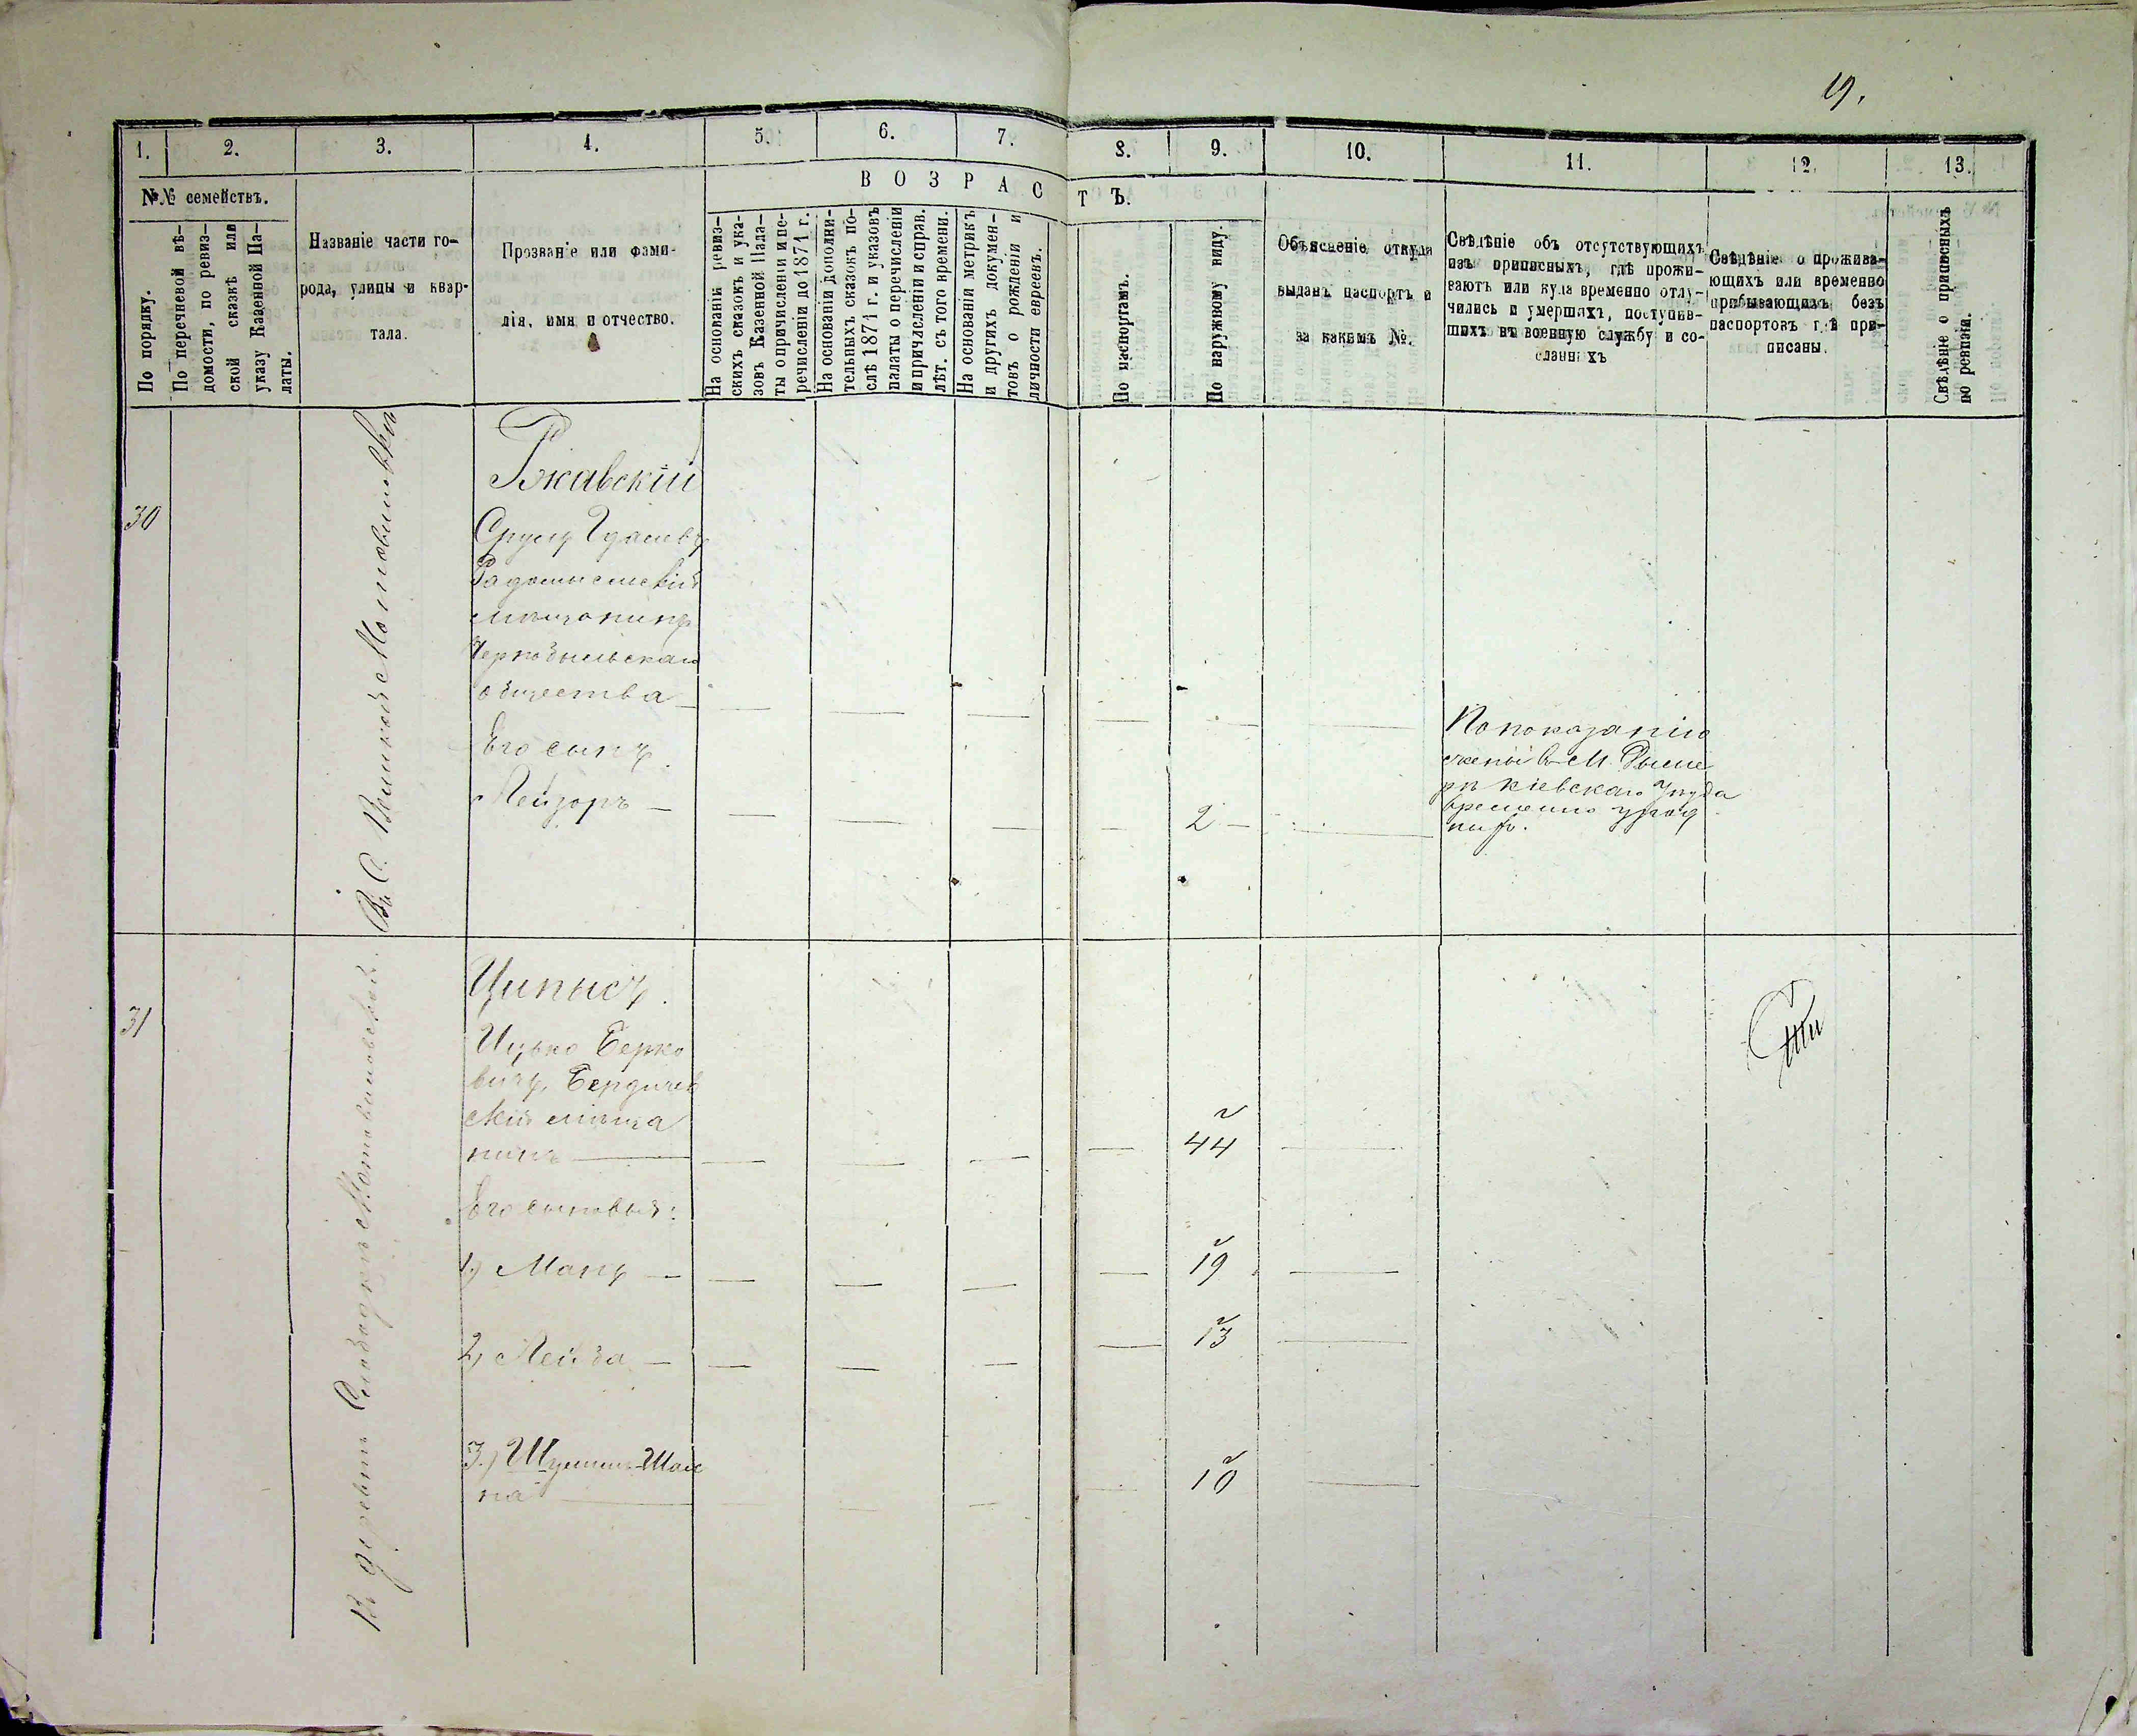 19.
1.
2.
3.
4.
5.
6.
7.
8.
9.
10.
11.
12.
13.
№№ семействъ.
ВОЗРАСТЪ.
По порядку.
По перечневой вѣ-
домости, по ревиз-
ской сказкѣ или
указу Казенной Па-
латы.
Названіе части го-
рода, улицы и квар-
тала.
Прозваніе или фами-
лія, имя и отчество.
На основаніи ревиз-
скихъ сказокъ и ука-
зовъ Казенной Пала-
ты о причисленіи и пе-
речисленіи до 1871 г.
На основаніи дополни-
тельныхъ сказокъ по-
слѣ 1871 г. и указовъ
палаты о перечисленіи
и причисленіи и справ.
лѣт. съ того времени.
На основаніи метрикъ
и другихъ докумен-
товъ о рожденіи и
личности евреевъ.
По паспортамъ.
По наружному виду.
Объясненіе откуда
выданъ паспортъ и
за какимъ №.
Свѣдѣніе объ отсутствующихъ
изъ приписныхъ, гдѣ прожи-
ваютъ или куда временно отлу-
чились и умершихъ, поступив-
шихъ въ военную службу и со-
сланныхъ
Свѣдѣніе о прожива-
ющихъ или временно
пребывающихъ безъ
паспортовъ гдѣ при-
писаны.
Свѣдѣніе о приписныхъ
по ревизіи.
30
Ржавскій
Сруль
Радомысльскій
мѣщанинъ
Чернобыльскаго
общества —
Его сынъ
Лейзоръ —
2 —
По показанію
жены в М. Дыме
рѣ Кіевскаго Уѣзда
временно
31
Въ деревнѣ Слободкѣ
Ципысъ.
Ицько Берко
вичъ, Бердичев
скій мѣща
нинъ —
44
Его сыновья:
1) Манъ —
19
2) Лейба —
13
3.)
10